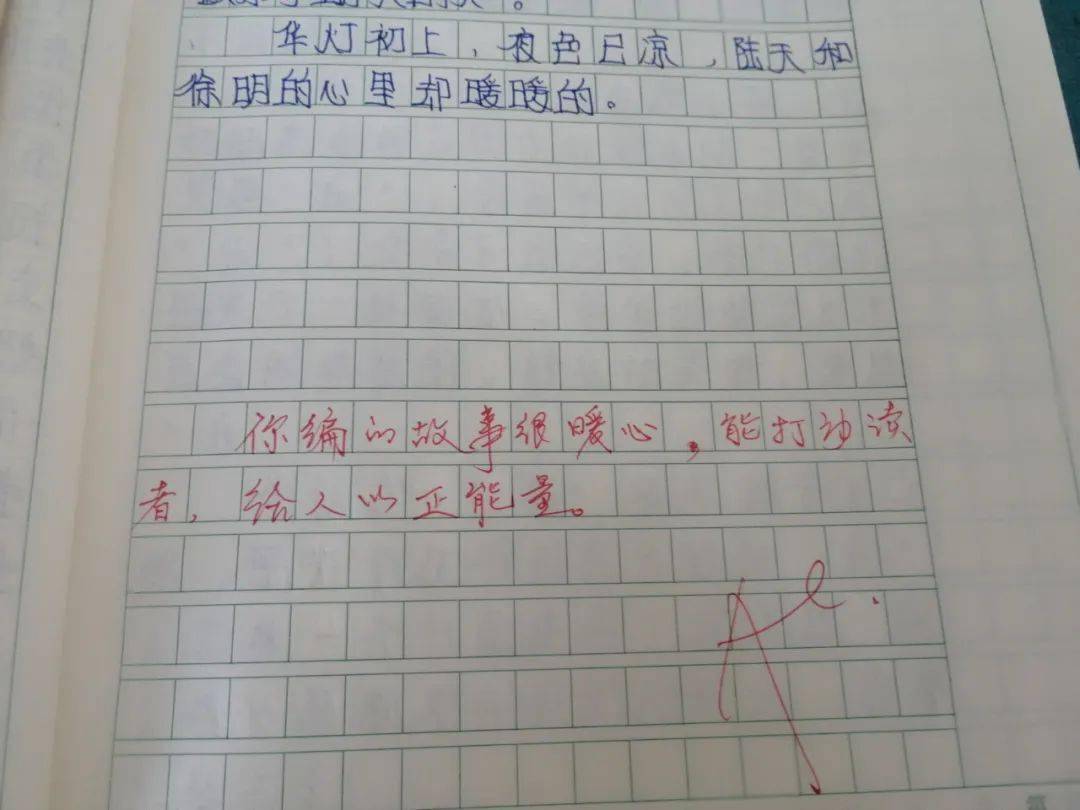 华灯初上，夜色已凉，陆天和
徐明的心里却暖暖的。
你编的故事很暖心，能打动读
者，给人以正能量。
A